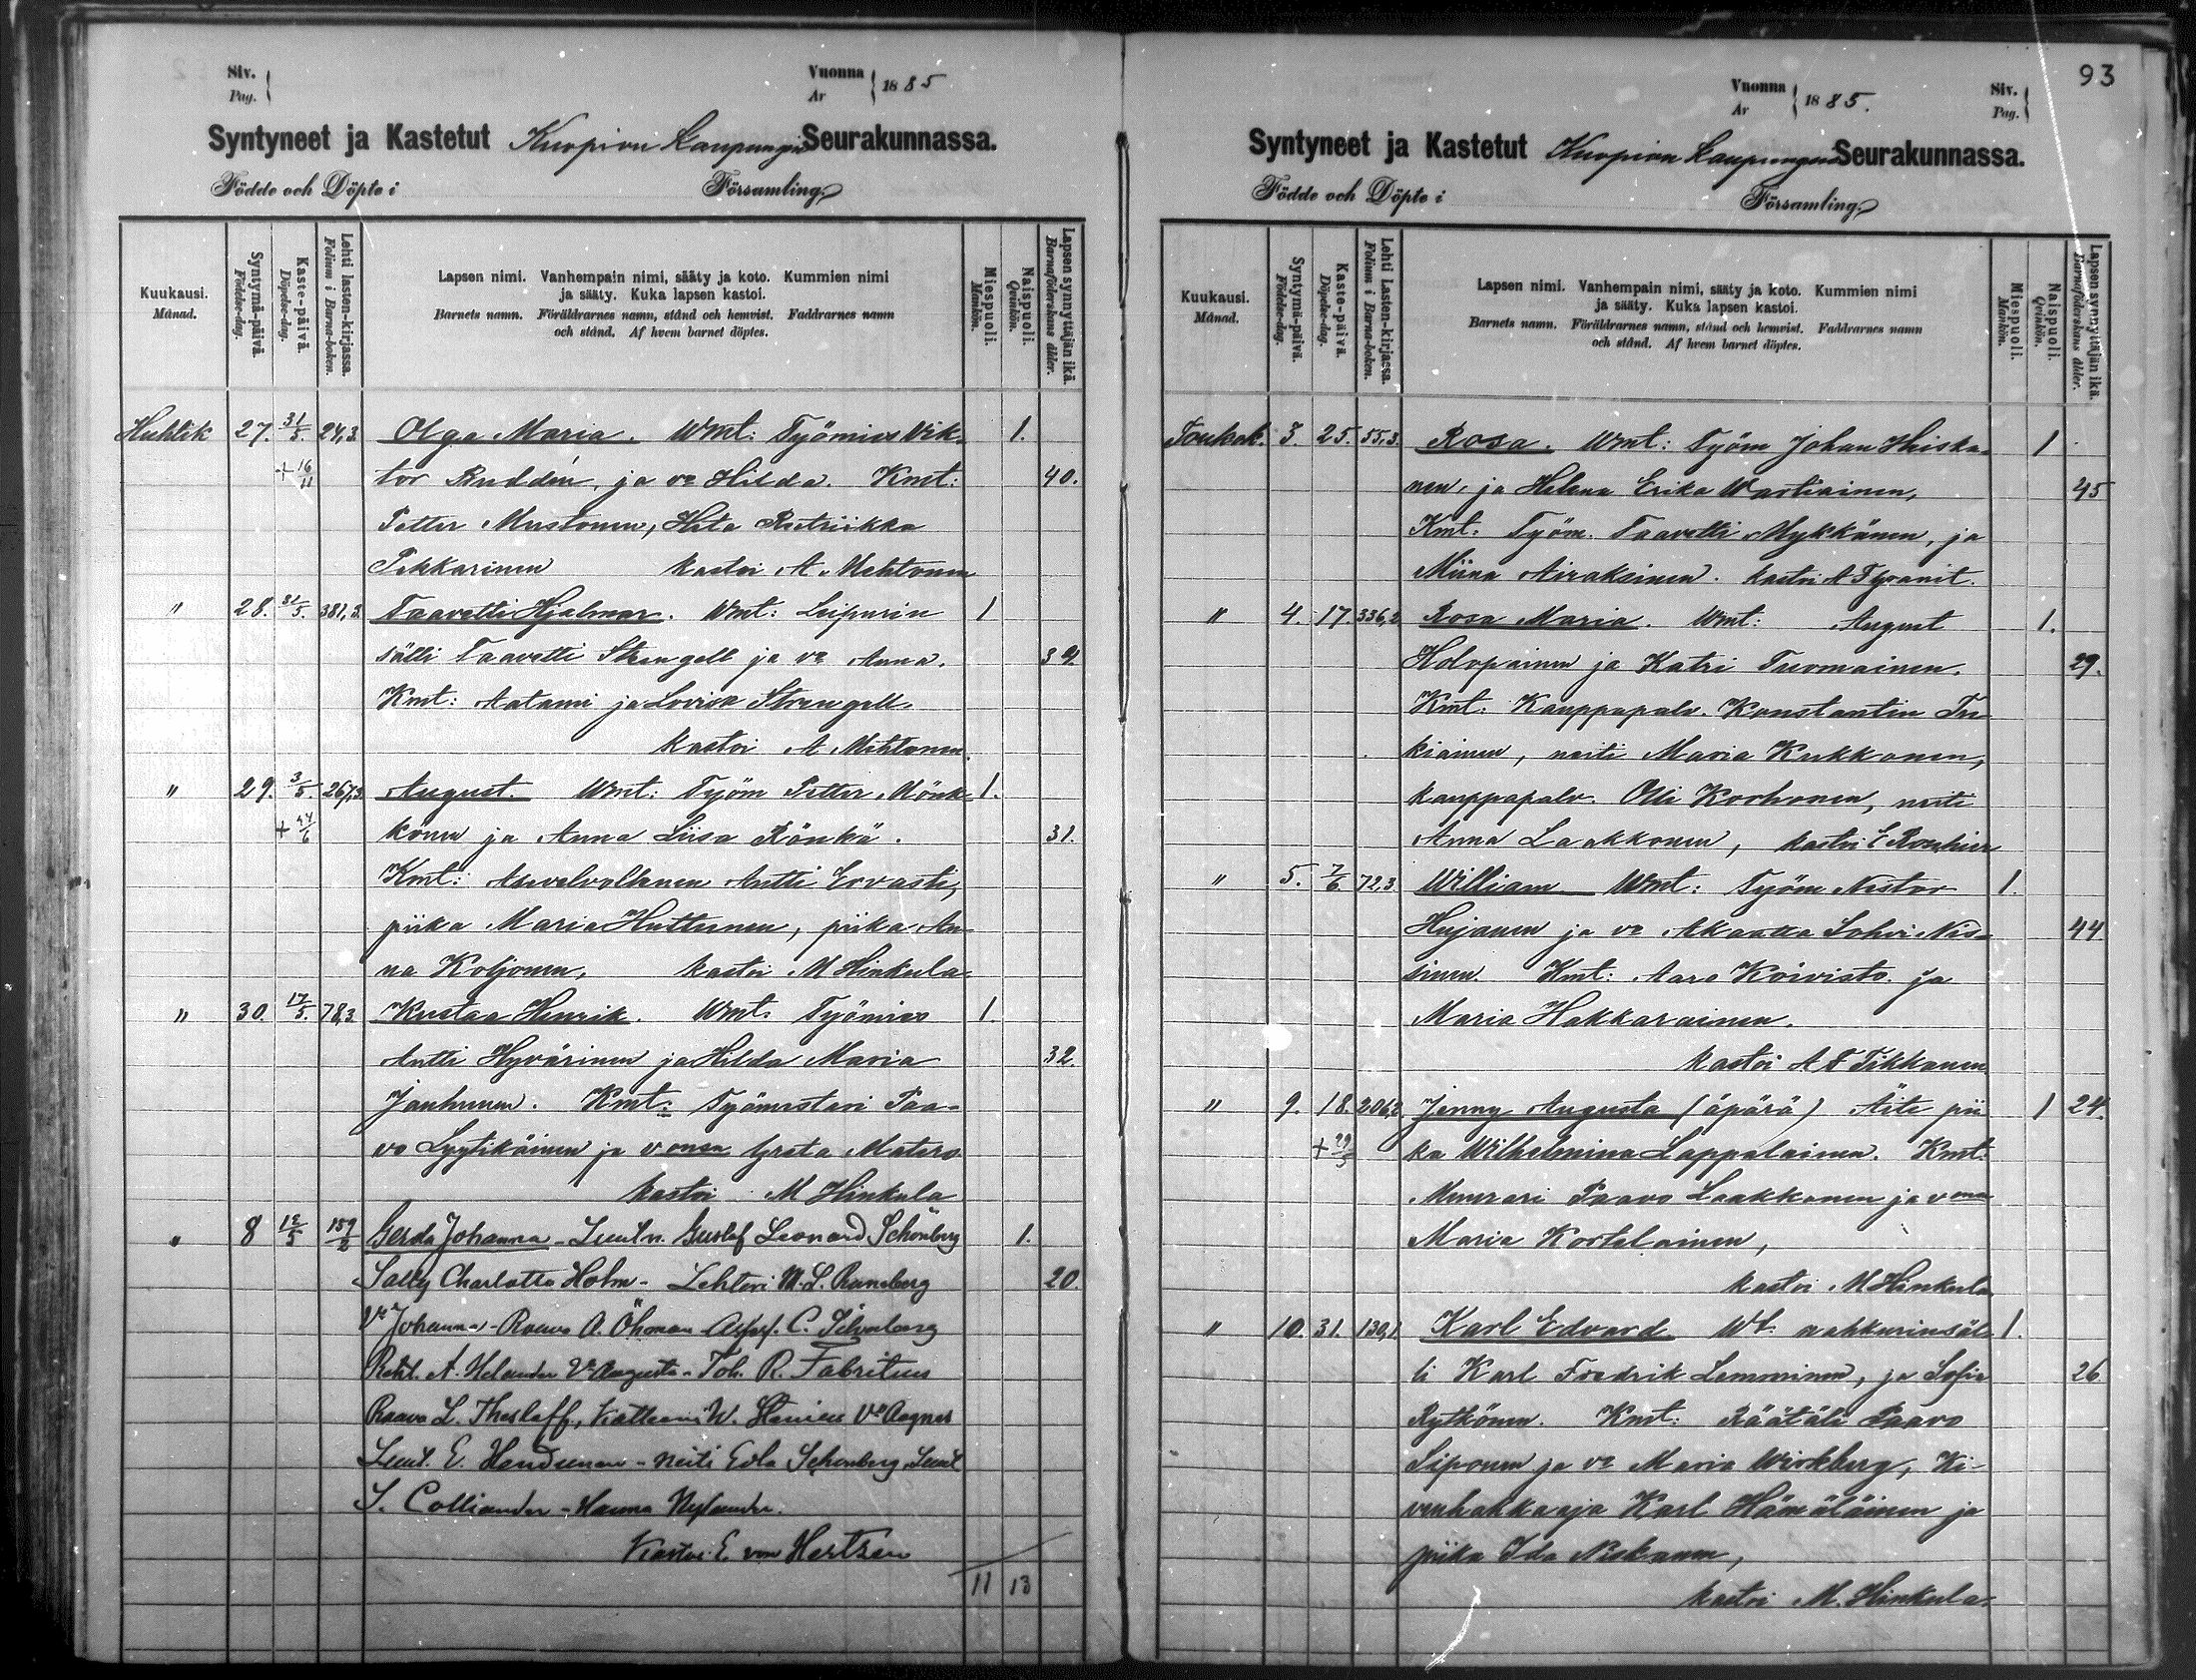 Siv.
Pag.
Vuonna
Ar
1885
Syntyneet ja Kastetut Kuopion Kaupungin Seurakunnassa.
Födde och Döpte i Församling.
Kuukausi.
Månad.
Syntymä-päivä.
Födelse-dag.
Kaste-päivä.
Döpelse-dag.
Lehti lasten-kirjassa.
Folium i Barna-boken.
Lapsen nimi. Vanhempain nimi, sääty ja koto. Kummien nimi
ja sääty. Kuka lapsen kastoi.
Barnets namn. Föräldrarnes namn, stånd och hemvist. Faddrarnes namn
och stånd. Af hvem barnet döptes.
Miespuoli.
Mankön.
Naispuoli.
Qvinkön.
Lapsen synnyttäjän ikä.
Barnaföderskans ålder.
Huhtik 27. 31/5. 24,3. Olga Maria. Wmt: Työmies Vik-
+ 16/11 tor Ruddén, ja vo Hilda. Kmt: 40.
Petter Mustonen, Heta
Pekkarinen kastoi A. Mehtonen
" 28. 31/5. 381,2. Taavetti Hjalmar. Wmt: Leipurin 1
sälli Taavetti Strengell ja vo Anna.
Kmt: Aatami ja Lovisa Strengell.
kastoi A Mehtonen.
" 29. 3/5. 267,3. August. Wmt: Työm Petter Mönk- 1.
+ könen ja Anna Liisa Rönkä. 31.
Kmt: Antti Ervasti,
piika Maria Huttunen, piika An-
na Koljonen, kastoi M Hinkula.
" 30. 17/5. 78,3 Kustaa Henrik. Wmt. Työmies 1.
Antti Hyvärinen ja Hilda Maria 32.
Janhunen. Kmt: Työmestari Paa-
vo Lyytikäinen ja vonsa Greta Matero
kastoi M Hinkula
" 8 159/2 Gerda Johanna - Luutn. Gustaf Leonard Schönberg 1.
Sally Charlotta Holm - Lehtori M. L. Runeberg 20.
Vo Johanna - Rouva A. Öhman C. Schönberg
A. Helander Vo Augusta - Toh. R. Fabritius
Rouva L. Thesleff, W. Vo Aagnes
Luut. E. - Neiti Edla Schönberg, Luut
S. Colliander - Hanna Nylander.
Kastoi E. von Hertzen
11 13
93
Vuonna
Ar
1885.
Siv.
Pag.
Syntyneet ja Kastetut Kuopion Kaupungin Seurakunnassa.
Födde och Döpte i Församling.
Kuukausi.
Månad.
Syntymä-päivä.
Födelse-dag.
Kaste-päivä.
Döpelse-dag.
Lehti Lasten-kirjassa.
Folium i Barna-boken.
Lapsen nimi. Vanhempain nimi, sääty ja koto. Kummien nimi
ja sääty. Kuka lapsen kastoi.
Barnets namn. Föräldrarnes namn, stånd och hemvist. Faddrarnes namn
och stånd. Af hvem barnet döptes.
Miespuoli.
Mankön.
Naispuoli.
Qvinkön.
Lapsen synnyttäjän ikä.
Barnaföderskans ålder.
Toukok. 3 25. 55,3. Rosa. Wmt: Työm Johan Hiiska- 1
nen, ja Helena Erika Wartiainen, 45
Kmt: Työm. Taavetti Mykkänen, ja
Miina Airaksinen. kastoi A
" 4. 17. 336,2 Rosa Maria. Wmt: August 1.
Holopainen ja Katri Tuomainen. 29.
Kmt: Kauppapalv. Konstantin Tu-
kiainen, neiti Maria Kukkonen,
kauppapalv. Olli Korhonen, neiti
Anna Laakkonen, kastoi E
" 5. 7/6 72,3 William Wmt: Työm Nestor 1.
Hujanen ja vo Akaatta Sohvi Nis- 44
sinen. Kmt: Aaro Koivisto ja
Maria Hakkarainen.
kastoi A F Tikkanen
" 9. 18. 206,2 Jenny Augusta (äpärä) Äiti pii 1 24.
+ 29/5 ka Wilhelmina Lappalainen. Kmt:
Muurari Paavo Laakkonen ja vonsa
Maria Kortelainen,
kastoi M Hinkula
" 10. 31. 130,1 Karl Edvard Wt. nahkurinsäl- 1.
li Karl Fredrik Lemminen, ja Sofia 26
Rytkönen. Kmt: Räätäli Paavo
Siponen ja vo Maria Wirkberg, Ki-
venhakkaaja Karl Hämäläinen ja
piika Ida Niskanen,
kastoi M. Hinkula.